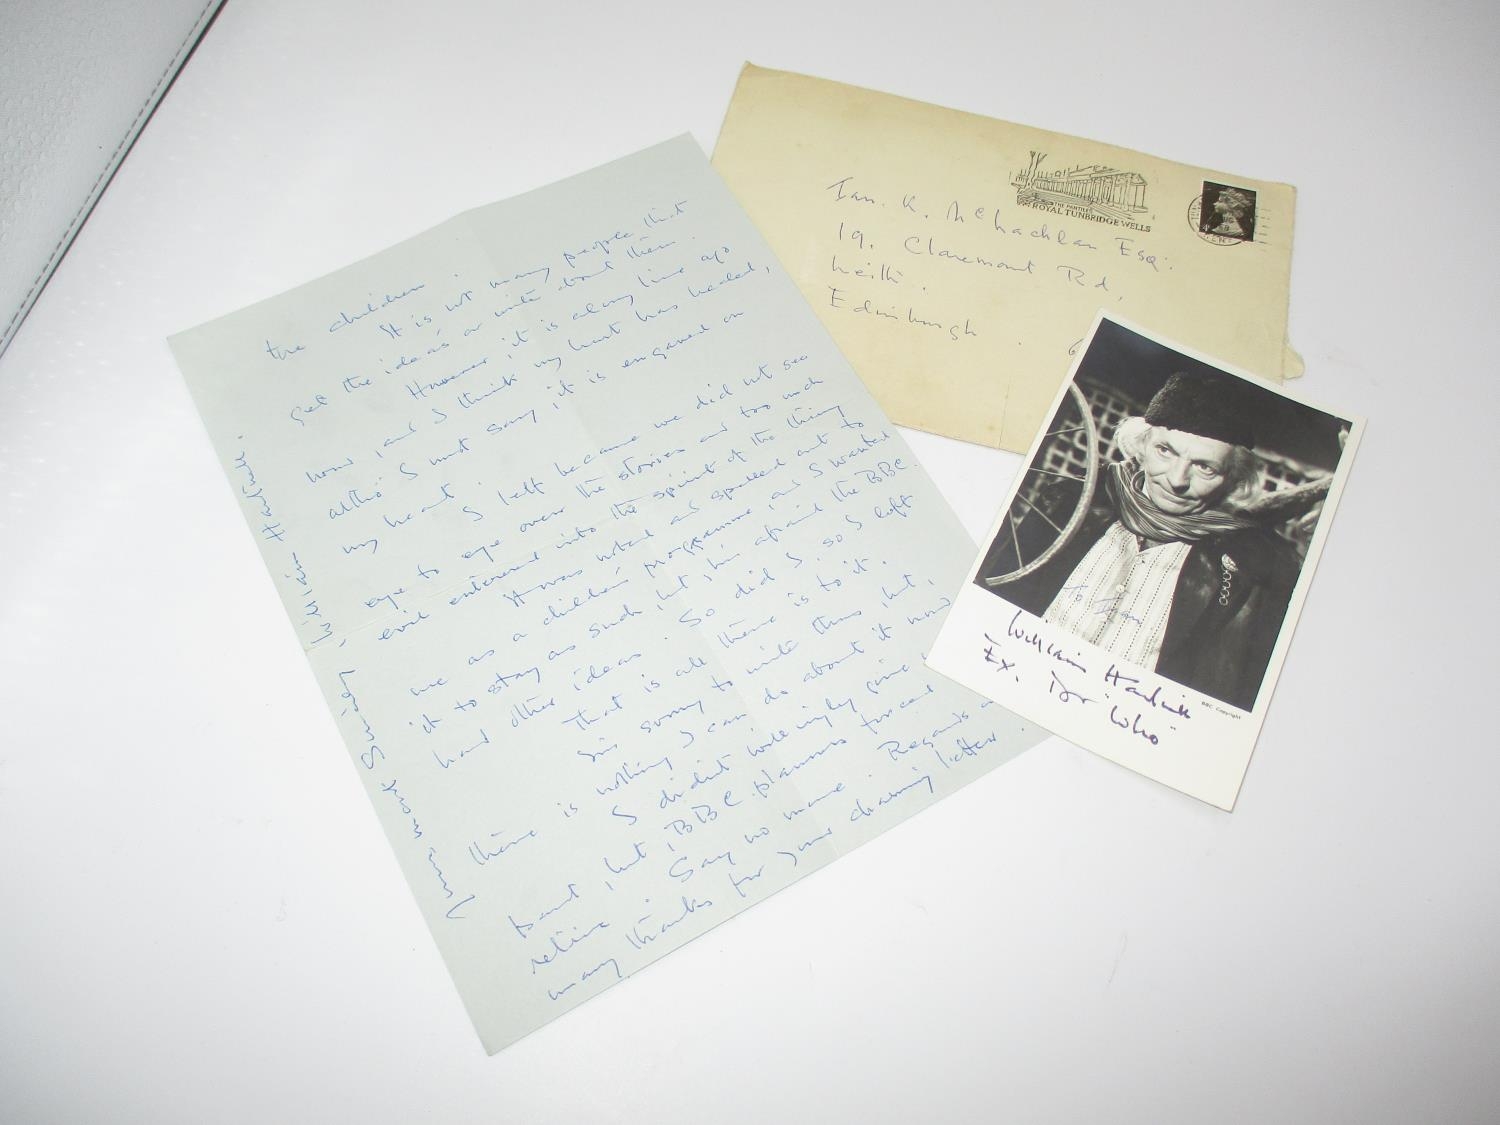 the children.
It is not many people that
get the ideas or write about them.
However, it is a long time ago
now, and I think my hurt has healed,
altho' I must say, it is engraved on
my heart.
I left because we did not see
eye to eye over the stories and too much
evil entered into the spirit of the thing
It was noted and spelled out to
me as a children's programme, and I wanted
it to stay as such, but, I'm afraid the BBC.
had other ideas. So did I. so I left
That is all there is to it.
I'm sorry to write thus, but,
there is nothing I can do about it now
I didn't willingly give
but, BBC. planners forced
retire. Say no more. Regards
many thanks for your charming letter.
Yours most Sincerely, William Hartnell.
THE PANTILES
ROYAL TUNBRIDGE WELLS
KENT
Ian. K. McLachlan Esq:
19. Claremont Rd.
Leith.
Edinburgh.
To Ian
William Hartnell
Ex. Dr "Who"
BBC Copyright